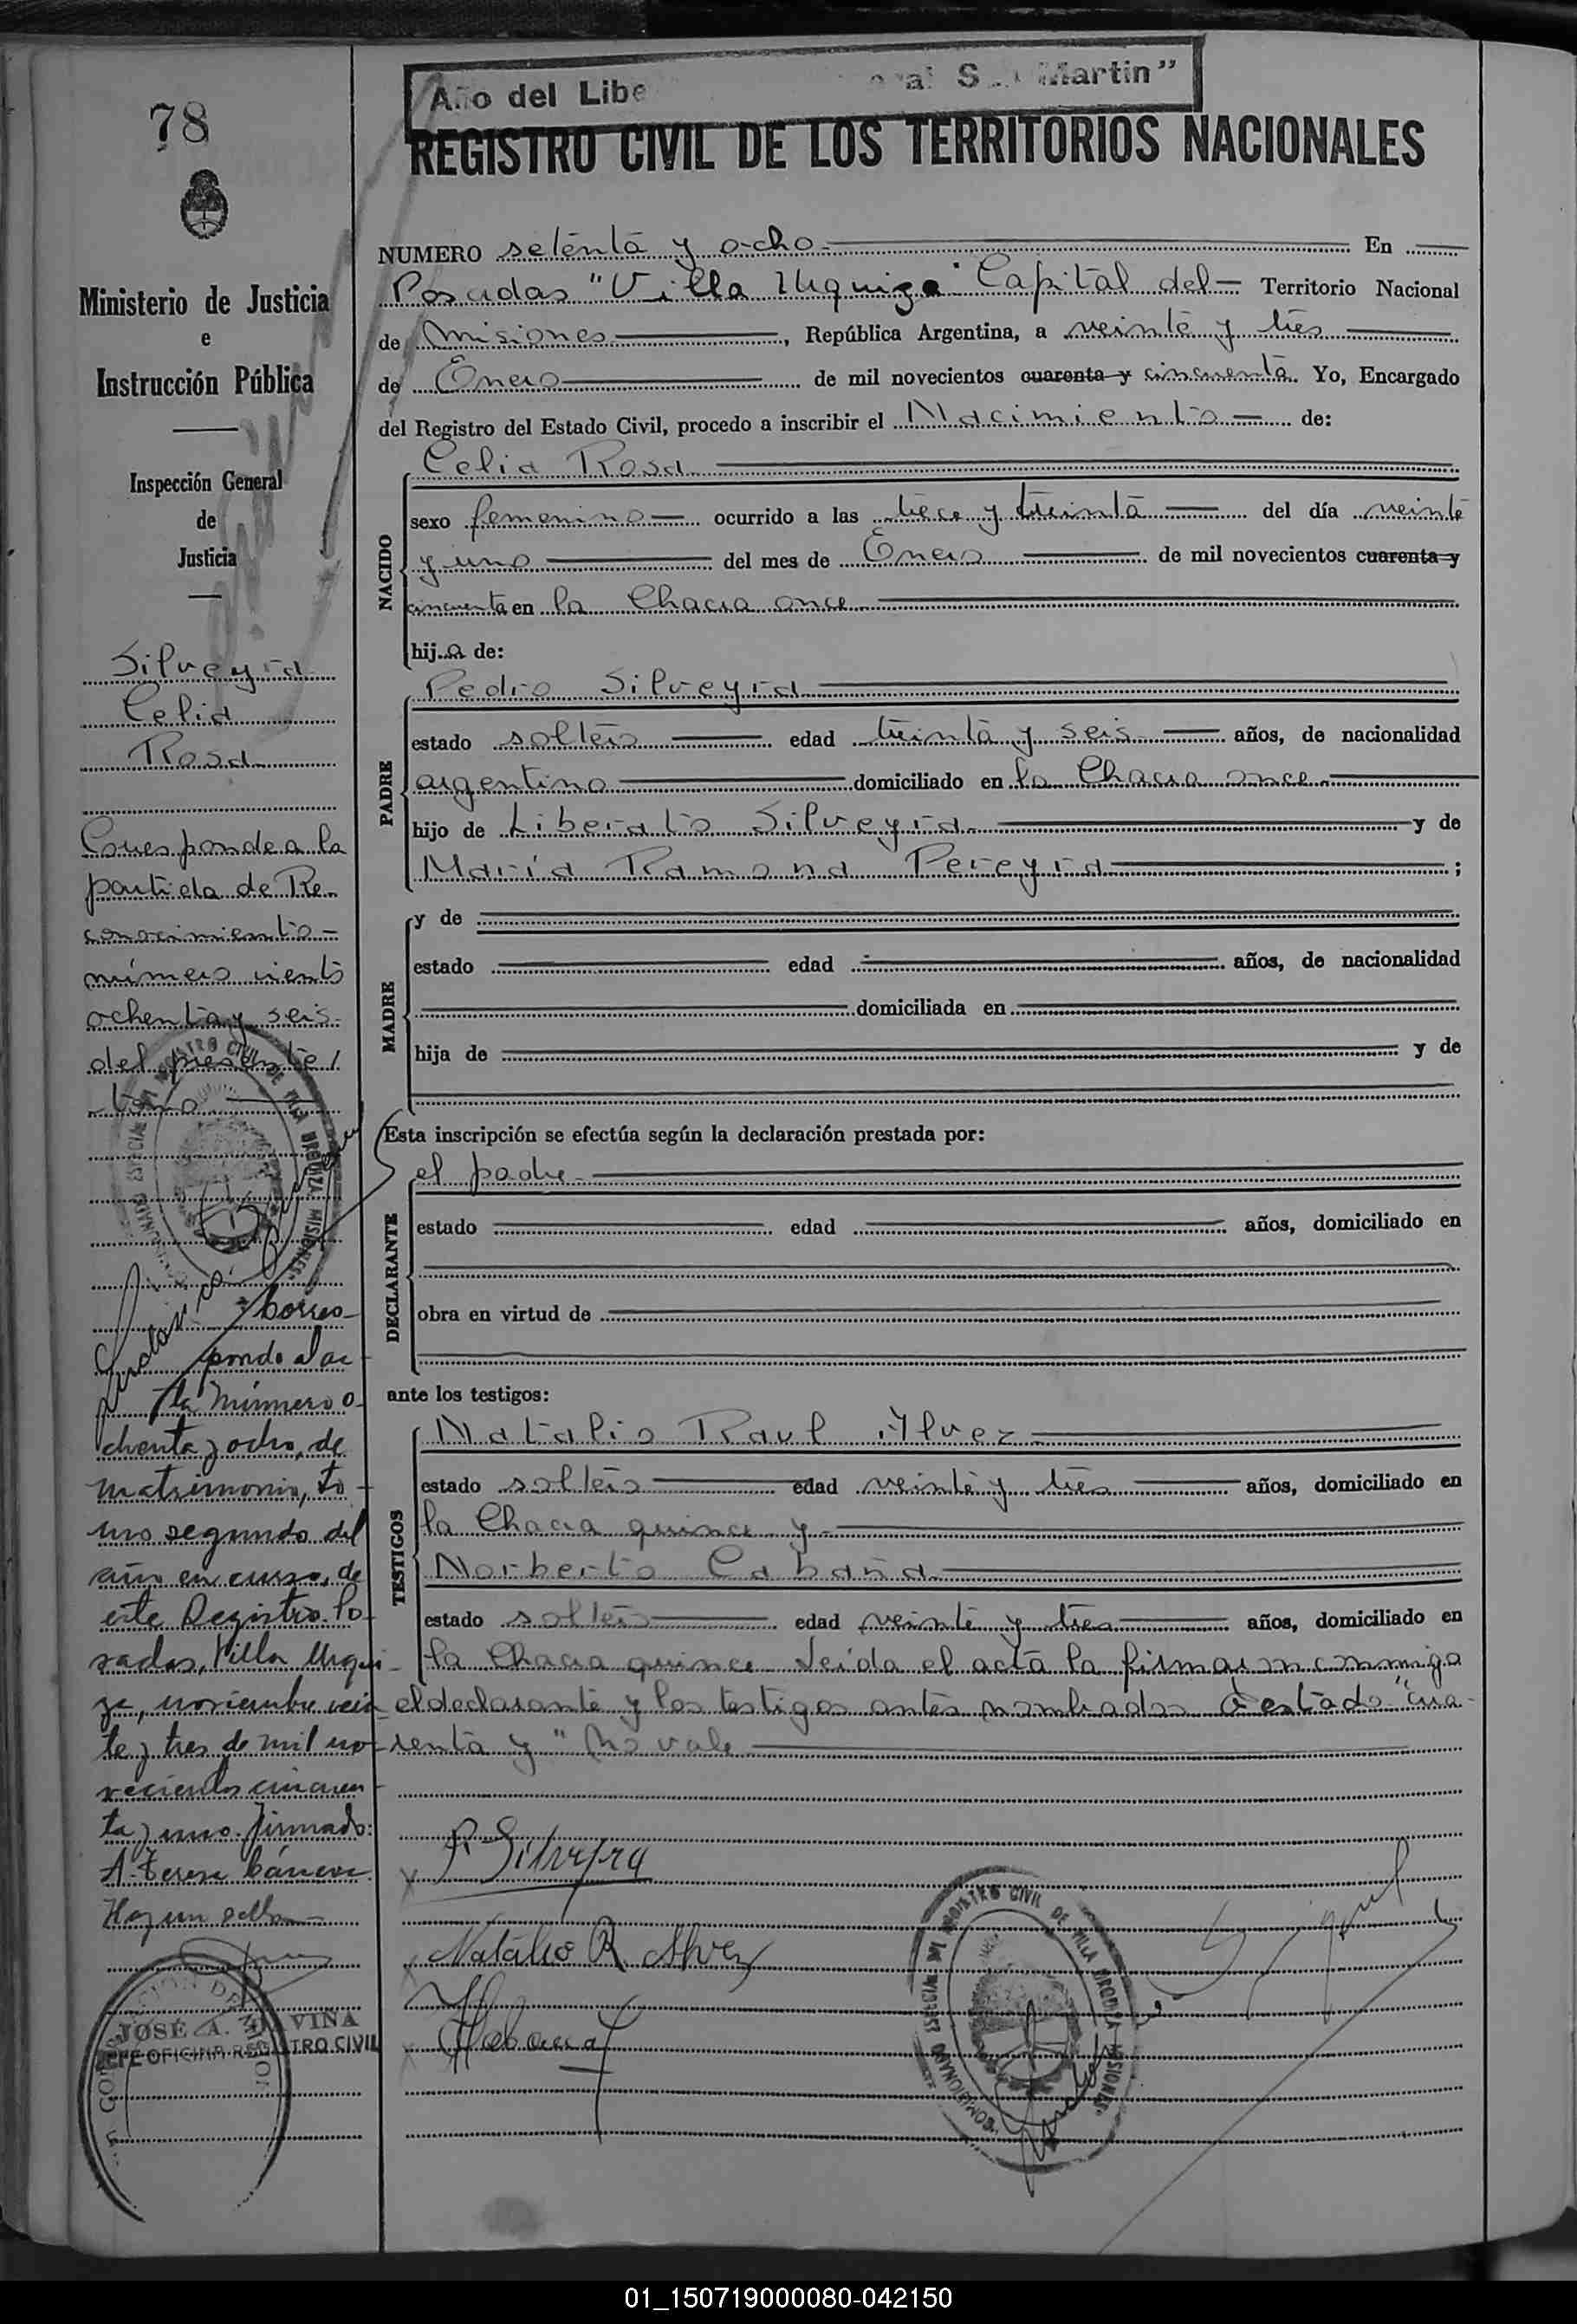 78
Año del Libe al San Martin"
REGISTRO CIVIL DE LOS TERRITORIOS NACIONALES
Ministerio de Justicia
e
Instrucción Pública
Inspección General
de
Justicia
Silveyra
Celia
Rosa
Corresponde a la
partida de Re-
conocimiento-
número ciento
ochenta y seis-
del presente/
tomo
Corres-
ponde al ac-
ta número o-
chenta y ocho, de
matrimonio, to-
mo segundo del
año en curso, de
este Registro. Po-
sadas, Villa Urqui-
za, noviembre vein-
te y tres de mil no-
vecientos cincuen-
ta y uno. Firmado:
A. Teresa
Hay un sello
JOSÉ A. VIÑA
JEFE OFICINA REGISTRO CIVIL
NUMERO setenta y ocho En
Posadas "Villa Urquiza" Capital del Territorio Nacional
de Misiones, República Argentina, a veinte y tres
de Enero de mil novecientos cuarenta y cincuenta. Yo, Encargado
del Registro del Estado Civil, procedo a inscribir el Nacimiento de:
NACIDO
Celia Rosa
sexo femenino ocurrido a las trece y treinta del día veinte
y uno del mes de Enero de mil novecientos cuarenta y
cincuenta en la Chacra once
hija de:
PADRE
Pedro Silveyra
estado soltero edad treinta y seis años, de nacionalidad
argentino domiciliado en la Chacra once
hijo de Liberato Silveyra y de
María Ramona Pereyra ;
MADRE
y de
estado edad años, de nacionalidad
domiciliada en
hija de y de
Esta inscripción se efectúa según la declaración prestada por:
DECLARANTE
el padre
estado edad años, domiciliado en
obra en virtud de
ante los testigos:
TESTIGOS
Natalio Raul Alvez
estado soltero edad veinte y tres años, domiciliado en
la Chacra quince y
Norberto Cabaña
estado soltero edad veinte y tres años, domiciliado en
la Chacra quince Leida el acta la firmaron conmigo
el declarante y los testigos antes nombrados Testado "cua-
renta y" No vale
P. Silveyra
Natalio R. Alvez
REGISTRO CIVIL DE VILLA URQUIZA MISIONES
01_150719000080-042150